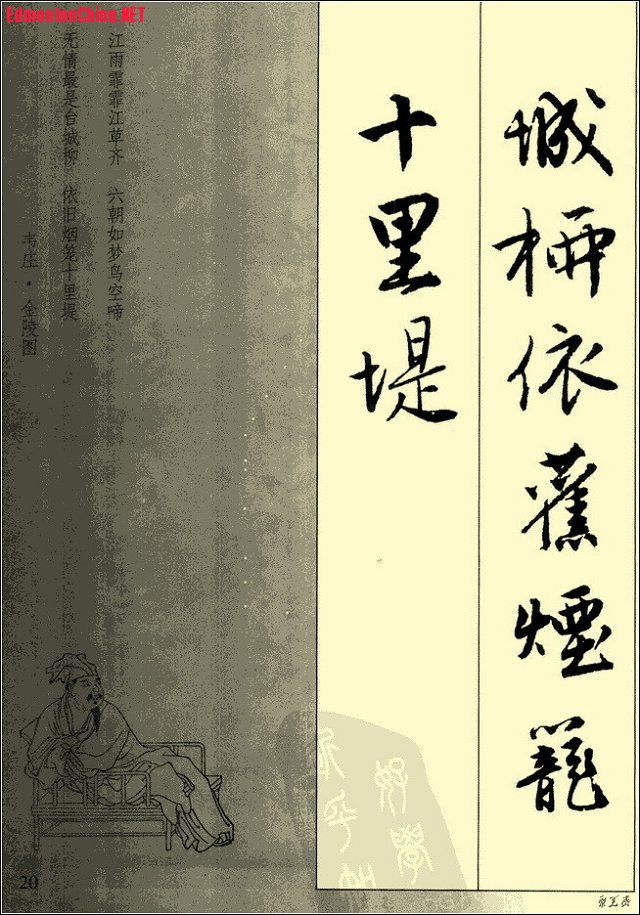 EdmontonChina.NET
城柳依舊煙籠
十里堤
江雨霏霏江草齐 六朝如梦鸟空啼
无情最是台城柳 依旧烟笼十里堤
韦庄·金陵图
20